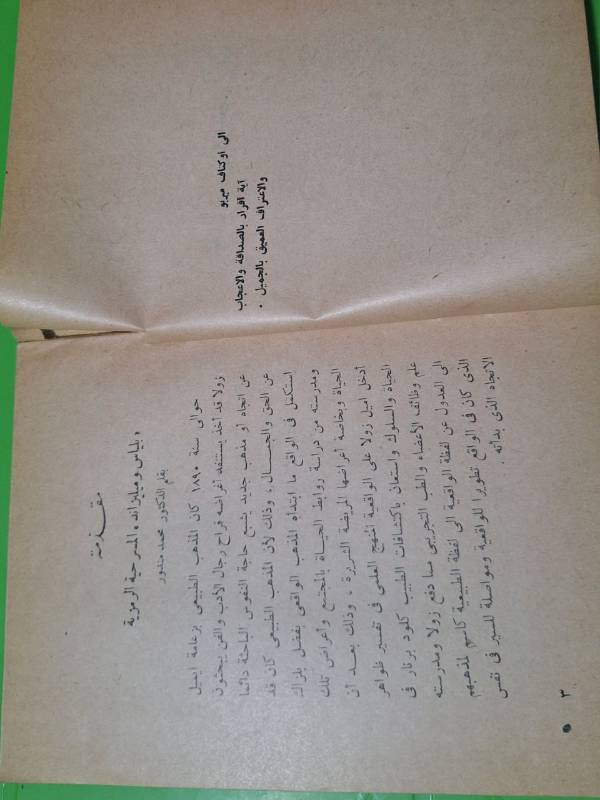 الى أوكتاف ميربو
آية اقرار بالصداقة والاعجاب
والاعتراف العميق بالجميل .
مقدمة
« بلياس وميليزاند » المسرحية الرمزية
بقلم الدكتور محمد مندور
حوالى سنة ١٨٩٠ كان المذهب الطبيعى بزعامة اميل
زولا قد أخذ يستنفد أغراضه فراح رجال الأدب والفن يبحثون
عن اتجاه أو مذهب جديد يشبع حاجة النفوس الباحثة دائما
عن الحق والجمال ، وذلك لأن المذهب الطبيعى كان قد
استكمل فى الواقع ما ابتدأه المذهب الواقعى بفضل بلزاك
ومدرسته من دراسة روابط الحياة بالمجتمع وأعراض تلك
الحياة وبخاصة أعراضها المريضة الشريرة ، وذلك بعد أن
أدخل اميل زولا على الواقعية المنهج العلمى فى تفسير ظواهر
الحياة والسلوك واستعان باكتشافات الطبيب كلود برنار فى
علم وظائف الأعضاء والطب التجريبى مما دفع زولا ومدرسته
الى العدول عن لفظة الواقعية الى لفظة الطبيعية كاسم لمذهبهم
الذى كان فى الواقع تطويرا للواقعية ومواصلة للسير فى نفس
الاتجاه الذى بدأته .
٣